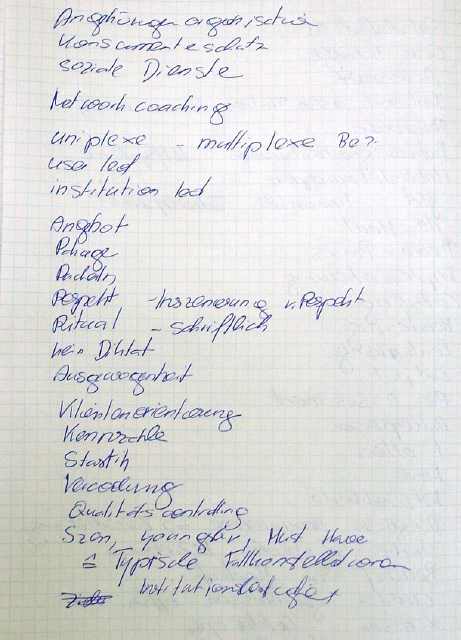 Angehörigenorganisation
Konsumentenschutz
soziale Dienste
Networkcoaching
uniplexe - multiplexe Bez.
user led
institution led
Angebot
Package
Respekt - Inszenierung v. Respekt
Ritual - schriftlich
kein Diktat
Ausgewogenheit
Klientenorientierung
Kennzahlen
Statistik
Qualitätscontrolling
Must Have
≙ Typische Fallkonstellationen